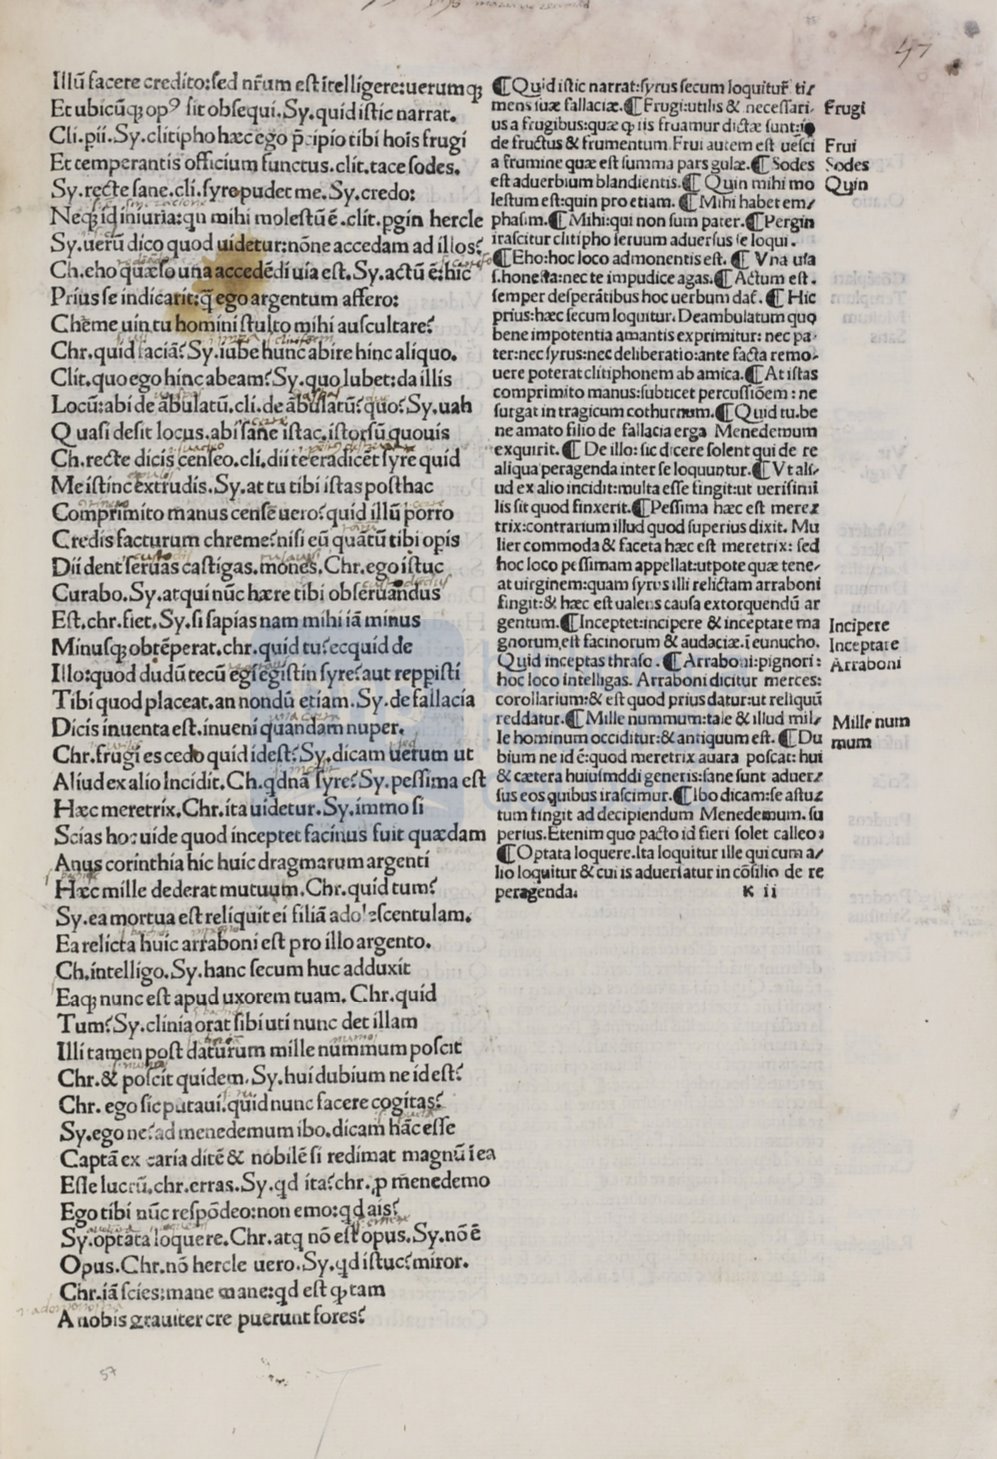 47
Illũ facere credito:sed nr̃um est ĩtelligere:uerumq;
Et ubicũq; opꝰ sit obsequi.Sy.quid istic narrat.
Cli.pii.Sy.clitipho hæc ego p̃cipio tibi hoĩs frugi
Et temperantis officium functus.clit.tace sodes.
Sy.recte sane.cli.syro pudet me.Sy.credo:
Neq; id iniuria:qn mihi molestũ ẽ.clit.pgin hercle
Sy.uerũ dico quod uidetur:nõne accedam ad illos?
Ch.eho quæso una accedẽdi uia est.Sy.actũ ẽ:hic
Prius se indicarit:q̃ ego argentum affero:
Chẽme uin tu homini stulto mihi auscultare?
Chr.quid faciã?Sy.iube hunc abire hinc aliquo.
Clit.quo ego hinc abeam?Sy.quo lubet:da illis
Locũ:abi de ãbulatũ.cli.de ãbulatũ?quo?Sy.uah
Quasi desit locus.abi sane istac.istorsũ quouis
Ch.recte dicis censeo.cli.dii te eradicẽt syre quid
Me istinc extrudis.Sy.at tu tibi istas posthac
Comprimito manus censẽ uero?quid illũ porro
Credis facturum chreme?nisi eũ quãtũ tibi opis
Dii dent seruas castigas.mones.Chr.ego istuc
Curabo.Sy.atqui nũc hære tibi obseruandus
Est.chr.fiet.Sy.si sapias nam mihi iã minus
Minusq; obtẽperat.chr.quid tu?ecquid de
Illo:quod dudũ tecũ egi egistin syre?aut reppisti
Tibi quod placeat.an nondũ etiam.Sy.de fallacia
Dicis inuenta est.inueni quandam nuper.
Chr.frugi es cedo quid id est?Sy.dicam uerum ut
Aliud ex alio Incidit.Ch.qdnã syre?Sy.pessima est
Hæc meretrix.Chr.ita uidetur.Sy.immo si
Scias hoc uide quod inceptet facinus fuit quædam
Anus corinthia hic huic dragmarum argenti
Hæc mille dederat mutuum.Chr.quid tum?
Sy.ea mortua est reliquit ei filiã adolescentulam.
Ea relicta huic arraboni est pro illo argento.
Ch.intelligo.Sy.hanc secum huc adduxit
Eaq; nunc est apud uxorem tuam.Chr.quid
Tum?Sy.clinia orat sibi uti nunc det illam
Illi tamen post daturum mille nummum poscit
Chr.& poscit quidem.Sy.hui dubium ne id est?
Chr.ego sic putaui.quid nunc facere cogitas?
Sy.ego ne?ad menedemum ibo.dicam hãc esse
Captã ex caria ditẽ & nobilẽ si redimat magnũ ĩ ea
Esse lucrũ.chr.erras.Sy.qd ita?chr.ꝓ mẽnedemo
Ego tibi nũc respõdeo:non emo:qd ais?
Sy.optata loquere.Chr.atq nõ est opus.Sy.nõ ẽ
Opus.Chr.nõ hercle uero.Sy.qd istuc?miror.
Chr.iã scies:mane mane:qd est ꝙ tam
A nobis grauiter crepuerunt fores?
¶Quid istic narrat:syrus secum loquitur̃ ti/
mens suæ fallaciæ.¶Frugi:utilis & necessari-
us a frugibus:quæ ꝙ iis fruamur dictæ sunt:
de fructus & frumentum.Frui autem est uesci
a frumine quæ est summa pars gulæ.¶Sodes
est aduerbium blandientis.¶Quin mihi mo
lestum est:quin pro etiam.¶Mihi habet em/
phasim.¶Mihi:qui non sum pater.¶Pergin
irascitur clitipho seruum aduersus se loqui.
¶Eho:hoc loco admonentis est.¶Vna uia
s.honesta:nec te impudice agas.¶Actum est.
semper desperãtibus hoc uerbum dat̃.¶Hic
prius:hæc secum loquitur.Deambulatum quo
bene impotentia amantis exprimitur:nec pa-
ter:nec syrus:nec deliberatio:ante facta remo-
uere poterat clitiphonem ab amica.¶At istas
comprimito manus:subticet percussiõem:ne
surgat in tragicum cothurnum.¶Quid tu.be
ne amato filio de fallacia erga Menedemum
exquirit.¶De illo:sic dicere solent qui de re
aliqua peragenda inter se loquuntur.¶Vt ali/
ud ex alio incidit:multa esse fingit:ut uerisimi
lis sit quod finxerit.¶Pessima hæc est mere
trix:contrarium illud quod superius dixit.Mu
lier commoda & faceta hæc est meretrix:sed
hoc loco pessimam appellat:utpote quæ tene/
at uirginem:quam syrus illi relictam arraboni
fingit:& hæc est ualens causa extorquendũ ar
gentum.¶Inceptet:incipere & inceptare ma
gnorum est facinorum & audaciæ.ĩ eunucho.
Quid inceptas thraso.¶Arraboni:pignori:
hoc loco intelligas.Arraboni dicitur merces:
corollarium:& est quod prius datur:ut reliquũ
reddatur.¶Mille nummum:tale & illud mil/
le hominum occiditur:& antiquum est.¶Du
bium ne id ẽ:quod meretrix auara poscat:hui
& cætera huiusmõdi generis:sane sunt aduer
sus eos quibus irascimur.¶Ibo dicam:se astu
tum fingit ad decipiendum Menedemum.su
perius.Etenim quo pacto id fieri solet calleo:
¶Optata loquere.Ita loquitur ille qui cum a/
lio loquitur & cui is aduersatur in cõsilio de re
peragenda.
K ii
Frugi
Frui
Sodes
Quin
Incipere
Inceptare
Arraboni
Mille num
mum
57